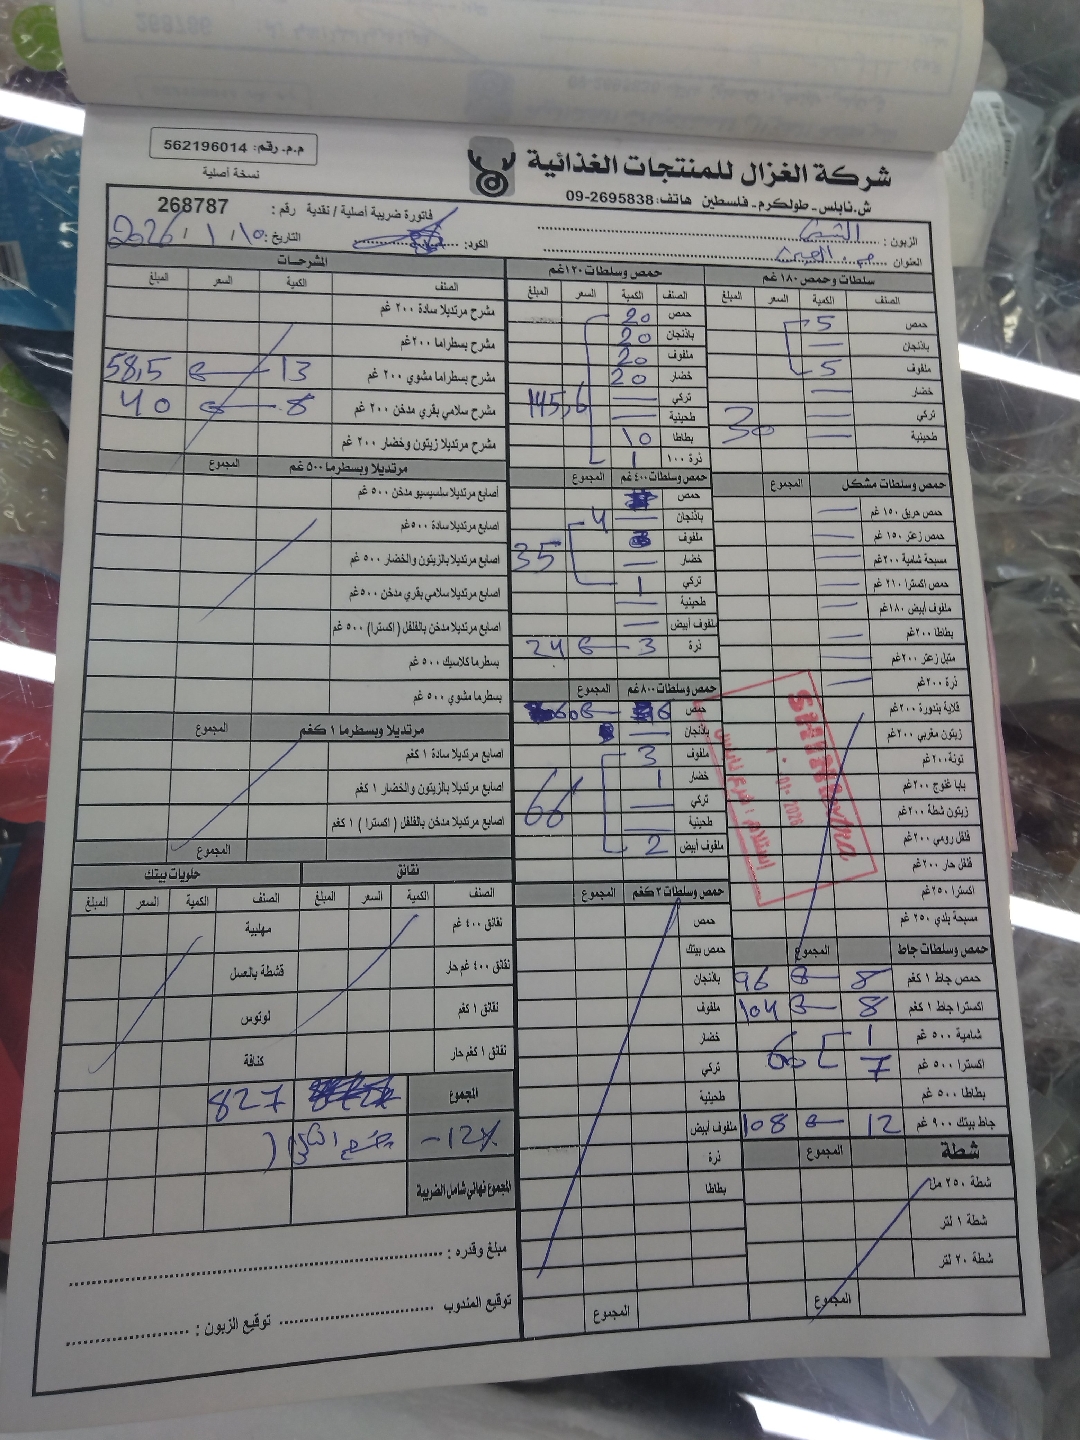 م.م. رقم: 562196014
نسخة أصلية
شركة الغزال للمنتجات الغذائية
ش.نابلس - طولكرم - فلسطين هاتف: 09-2695838
فاتورة ضريبة أصلية / نقدية رقم: 268787
الزبون:
العنوان
الكود:
التاريخ: 10 / 1 / 2026
سلطات وحمص ١٨٠غم
الصنف الكمية السعر المبلغ
حمص 5
باذنجان —
ملفوف 5
خضار —
تركي —
طحينية —
30
حمص وسلطات مشكل المجموع
حمص حريق ١٥٠ غم —
حمص زعتر ١٥٠ غم —
مسبحة شامية ٢٠٠غم —
حمص اكسترا ٢١٠ غم —
ملفوف أبيض ١٨٠غم —
بطاطا ٢٠٠غم —
متبل زعتر ٢٠٠غم —
ذرة ٢٠٠غم —
قلاية بندورة ٢٠٠غم
زيتون مغربي ٢٠٠غم
تونة ٢٠٠غم
بابا غنوج ٢٠٠غم
زيتون شطة ٢٠٠غم
فلفل رومي ٢٠٠غم
فلفل حار ٢٠٠غم
اكسترا ٢٥٠غم
مسبحة بلدي ٢٥٠ غم
حمص وسلطات جاط المجموع
حمص جاط ١ كغم 8 96
اكسترا جاط ١ كغم 8 104
شامية ٥٠٠ غم 1
اكسترا ٥٠٠ غم 7
60
بطاطا ٥٠٠ غم
جاط بيتك ٩٠٠ غم 12 108
شطة المجموع
شطة ٢٥٠ مل
شطة ١ لتر
شطة ٢٠ لتر
المجموع
حمص وسلطات ١٢٠غم
الصنف الكمية السعر المبلغ
حمص 20
باذنجان 20
ملفوف 20
خضار 20
تركي —
طحينية —
بطاطا 10
ذرة ١٠٠ 1
145,6
حمص وسلطات ٤٠٠غم المجموع
حمص
باذنجان — 4
ملفوف
خضار —
تركي 1
35
طحينية —
ملفوف أبيض —
ذرة 3 24
حمص وسلطات ٨٠٠غم المجموع
حمص 6 60
باذنجان —
ملفوف 3
خضار 1
تركي —
طحينية —
ملفوف أبيض 2
66
حمص وسلطات ٣كغم المجموع
حمص
حمص بيتك
باذنجان
ملفوف
خضار
تركي
طحينية
ملفوف أبيض
ذرة
بطاطا
المجموع
المشرحات
الصنف الكمية السعر المبلغ
مشرح مرتديلا سادة ٢٠٠ غم
مشرح بسطراما ٢٠٠غم
مشرح بسطراما مشوي ٢٠٠ غم 13 58,5
مشرح سلامي بقري مدخن ٢٠٠ غم 8 40
مشرح مرتديلا زيتون وخضار ٢٠٠ غم
مرتديلا وبسطرما ٥٠٠غم المجموع
اصابع مرتديلا سلسيسيو مدخن ٥٠٠ غم
اصابع مرتديلا سادة ٥٠٠غم
اصابع مرتديلا بالزيتون والخضار ٥٠٠ غم
اصابع مرتديلا سلامي بقري مدخن ٥٠٠غم
اصابع مرتديلا مدخن بالفلفل (اكسترا) ٥٠٠ غم
بسطرما كلاسيك ٥٠٠ غم
بسطرما مشوي ٥٠٠ غم
مرتديلا وبسطرما ١ كغم المجموع
اصابع مرتديلا سادة ١ كغم
اصابع مرتديلا بالزيتون والخضار ١ كغم
اصابع مرتديلا مدخن بالفلفل (اكسترا) ١ كغم
المجموع
نقانق
الصنف الكمية السعر المبلغ
نقانق ٤٠٠ غم
نقانق ٤٠٠ غم حار
نقانق ١ كغم
نقانق ١ كغم حار
حلويات بيتك
الصنف الكمية السعر المبلغ
مهلبية
قشطة بالعسل
لوتوس
كنافة
المجموع 827
-12%
المجموع نهائي شامل الضريبة
مبلغ وقدره:
توقيع المندوب
توقيع الزبون: